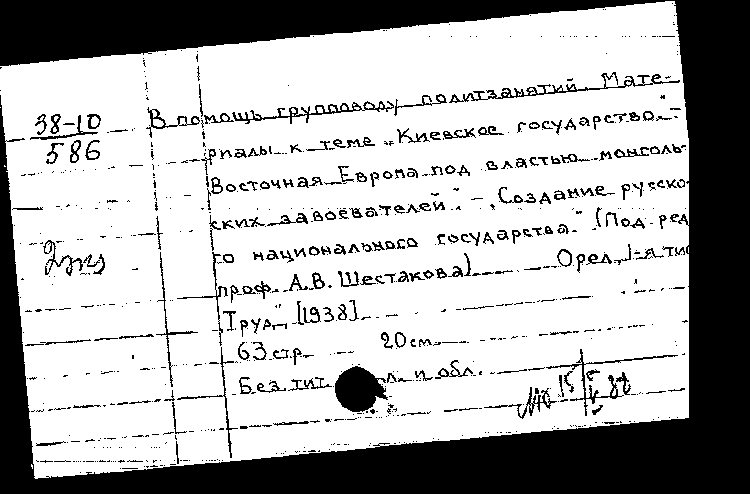 38-10
586
2 экз
В помощь групповоду политзанятий. Мате-
риалы к теме „Киевское государство." –
Восточная Европа под властью монголь-
ских завоевателей". – „Создание русско-
го национального государства." (Под ред
проф. А.В. Шестакова) Орел, 1-я тип
„Труд", [1938]
63 стр. 20 см.
Без тит. л. и обл.
15 V 88